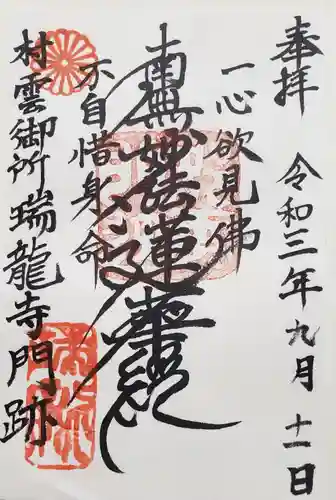 奉拝
令和三年九月十一日
一心欲見佛
南無妙法蓮華経
不自惜身命
村雲御所瑞龍寺門跡